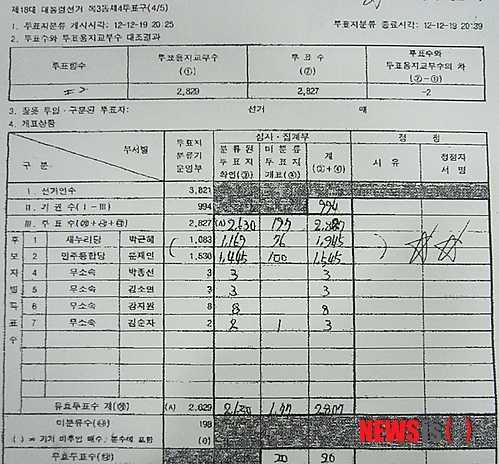 제18대 대통령선거 목3동제4투표구(4/5)
1. 투표지분류 개시시각: 12-12-19 20:25 투표지분류 종료시각: 12-12-19 20:39
2. 투표수와 투표용지교부수 대조결과
투표함수 투표용지교부수 (①) 투표수 (②) 투표수와 투표용지교부수의 차 (②-①)
2,829 2,827 -2
3. 잘못 투입·구분된 투표지: 선거 매
4. 개표상황
구분 부서별 투표지 분류기 운영부 심사·집계부 정정
분류된 투표지 확인(③) 미분류 투표지 개표(④) 계 (③+④) 사유 정정자 서명
I. 선거인수 3,821
II. 기권수 (I-III) 994 994
III. 투표수 2,827 (A) 2,630 197 2,827
후보자별득표수
1 새누리당 박근혜 1,083 1,169 76 1,245
2 민주통합당 문재인 1,530 1,445 100 1,545
4 무소속 박종선 3 3 3
5 무소속 김소연 3 3 3
6 무소속 강지원 8 8 8
7 무소속 김순자 2 2 1 3
유효투표수 계 (A) 2,629
미분류수 198
(0)
무효투표수 20 20
NEWSIS( )